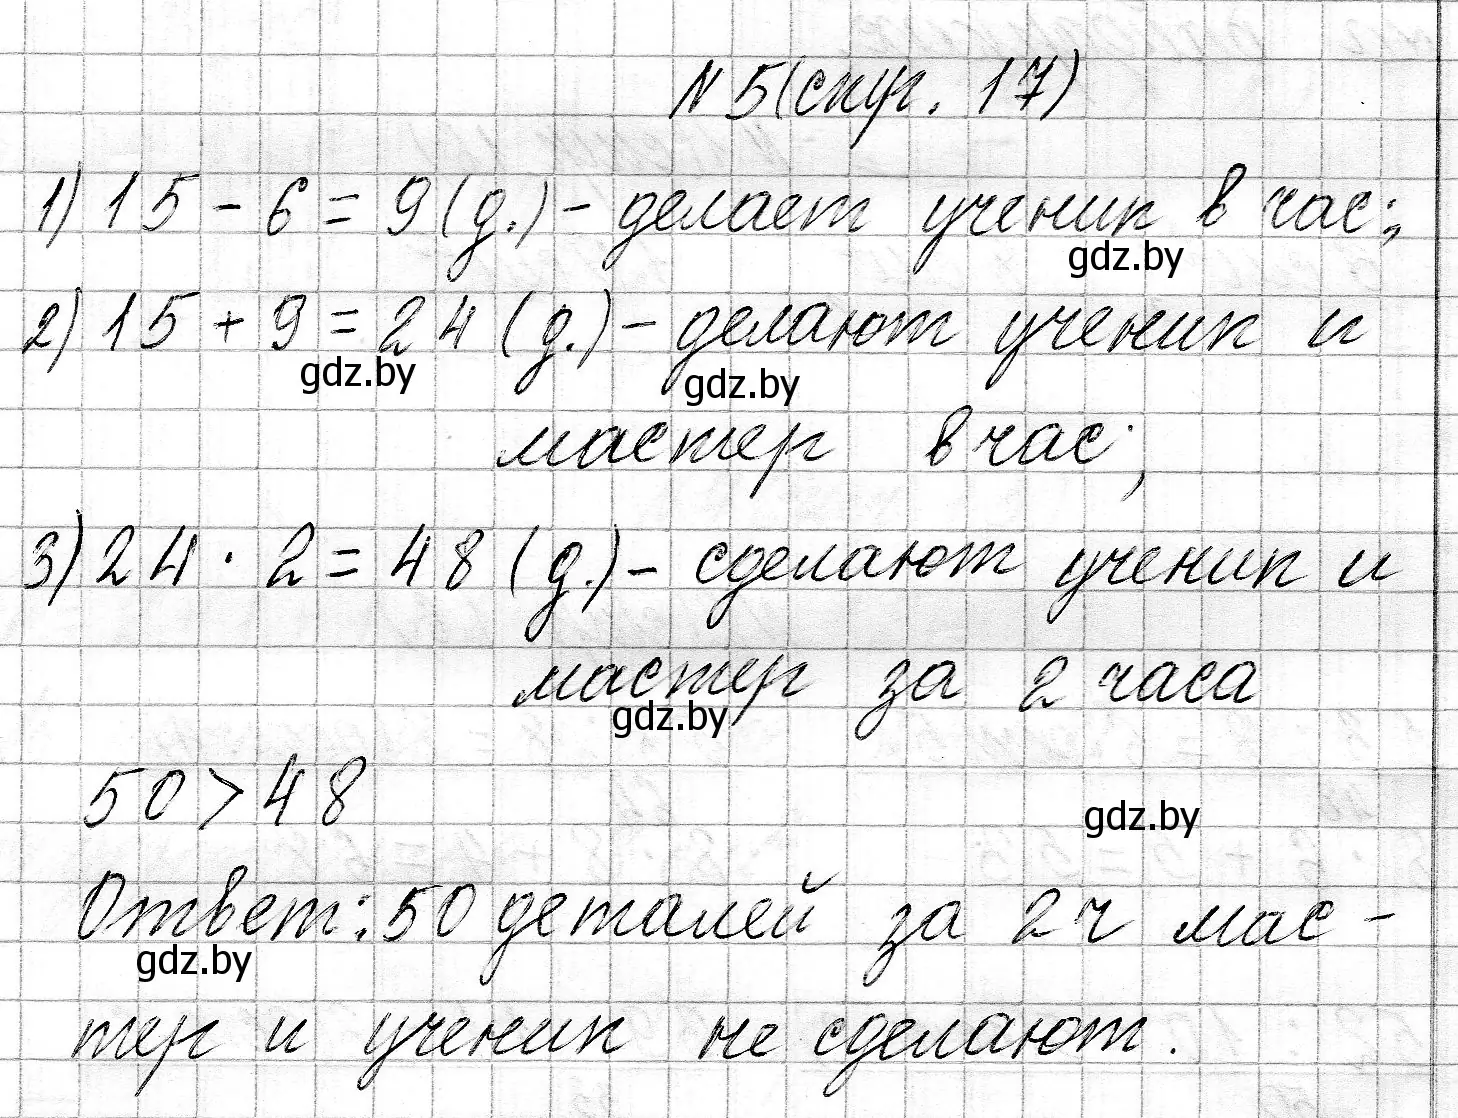 N 5 (стр. 17)
1) 15 - 6 = 9 (д.) - делает ученик в час;
gdz.by
2) 15 + 9 = 24 (д.) - делают ученик и
gdz.by gdz.by
мастер в час;
3) 24 · 2 = 48 (д.) - сделают ученик и
мастер за 2 часа
gdz.by
50 > 48
gdz.by
Ответ: 50 деталей за 2 ч мас-
gdz.by
тер и ученик не сделают.